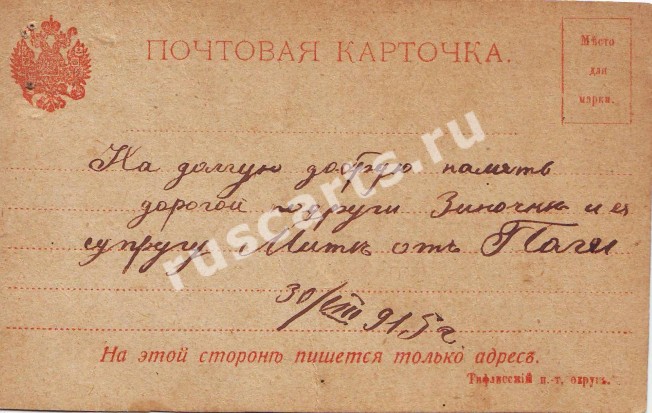 ПОЧТОВАЯ КАРТОЧКА.
Мѣсто
для
марки.
На долгую добрую память
дорогой подруги Зиночки и ея
супругу Митѣ отъ
30/VIII 915 г
На этой сторонѣ пишется только адресъ.
Тифлисскій п.-т. округъ.
ruscarts.ru